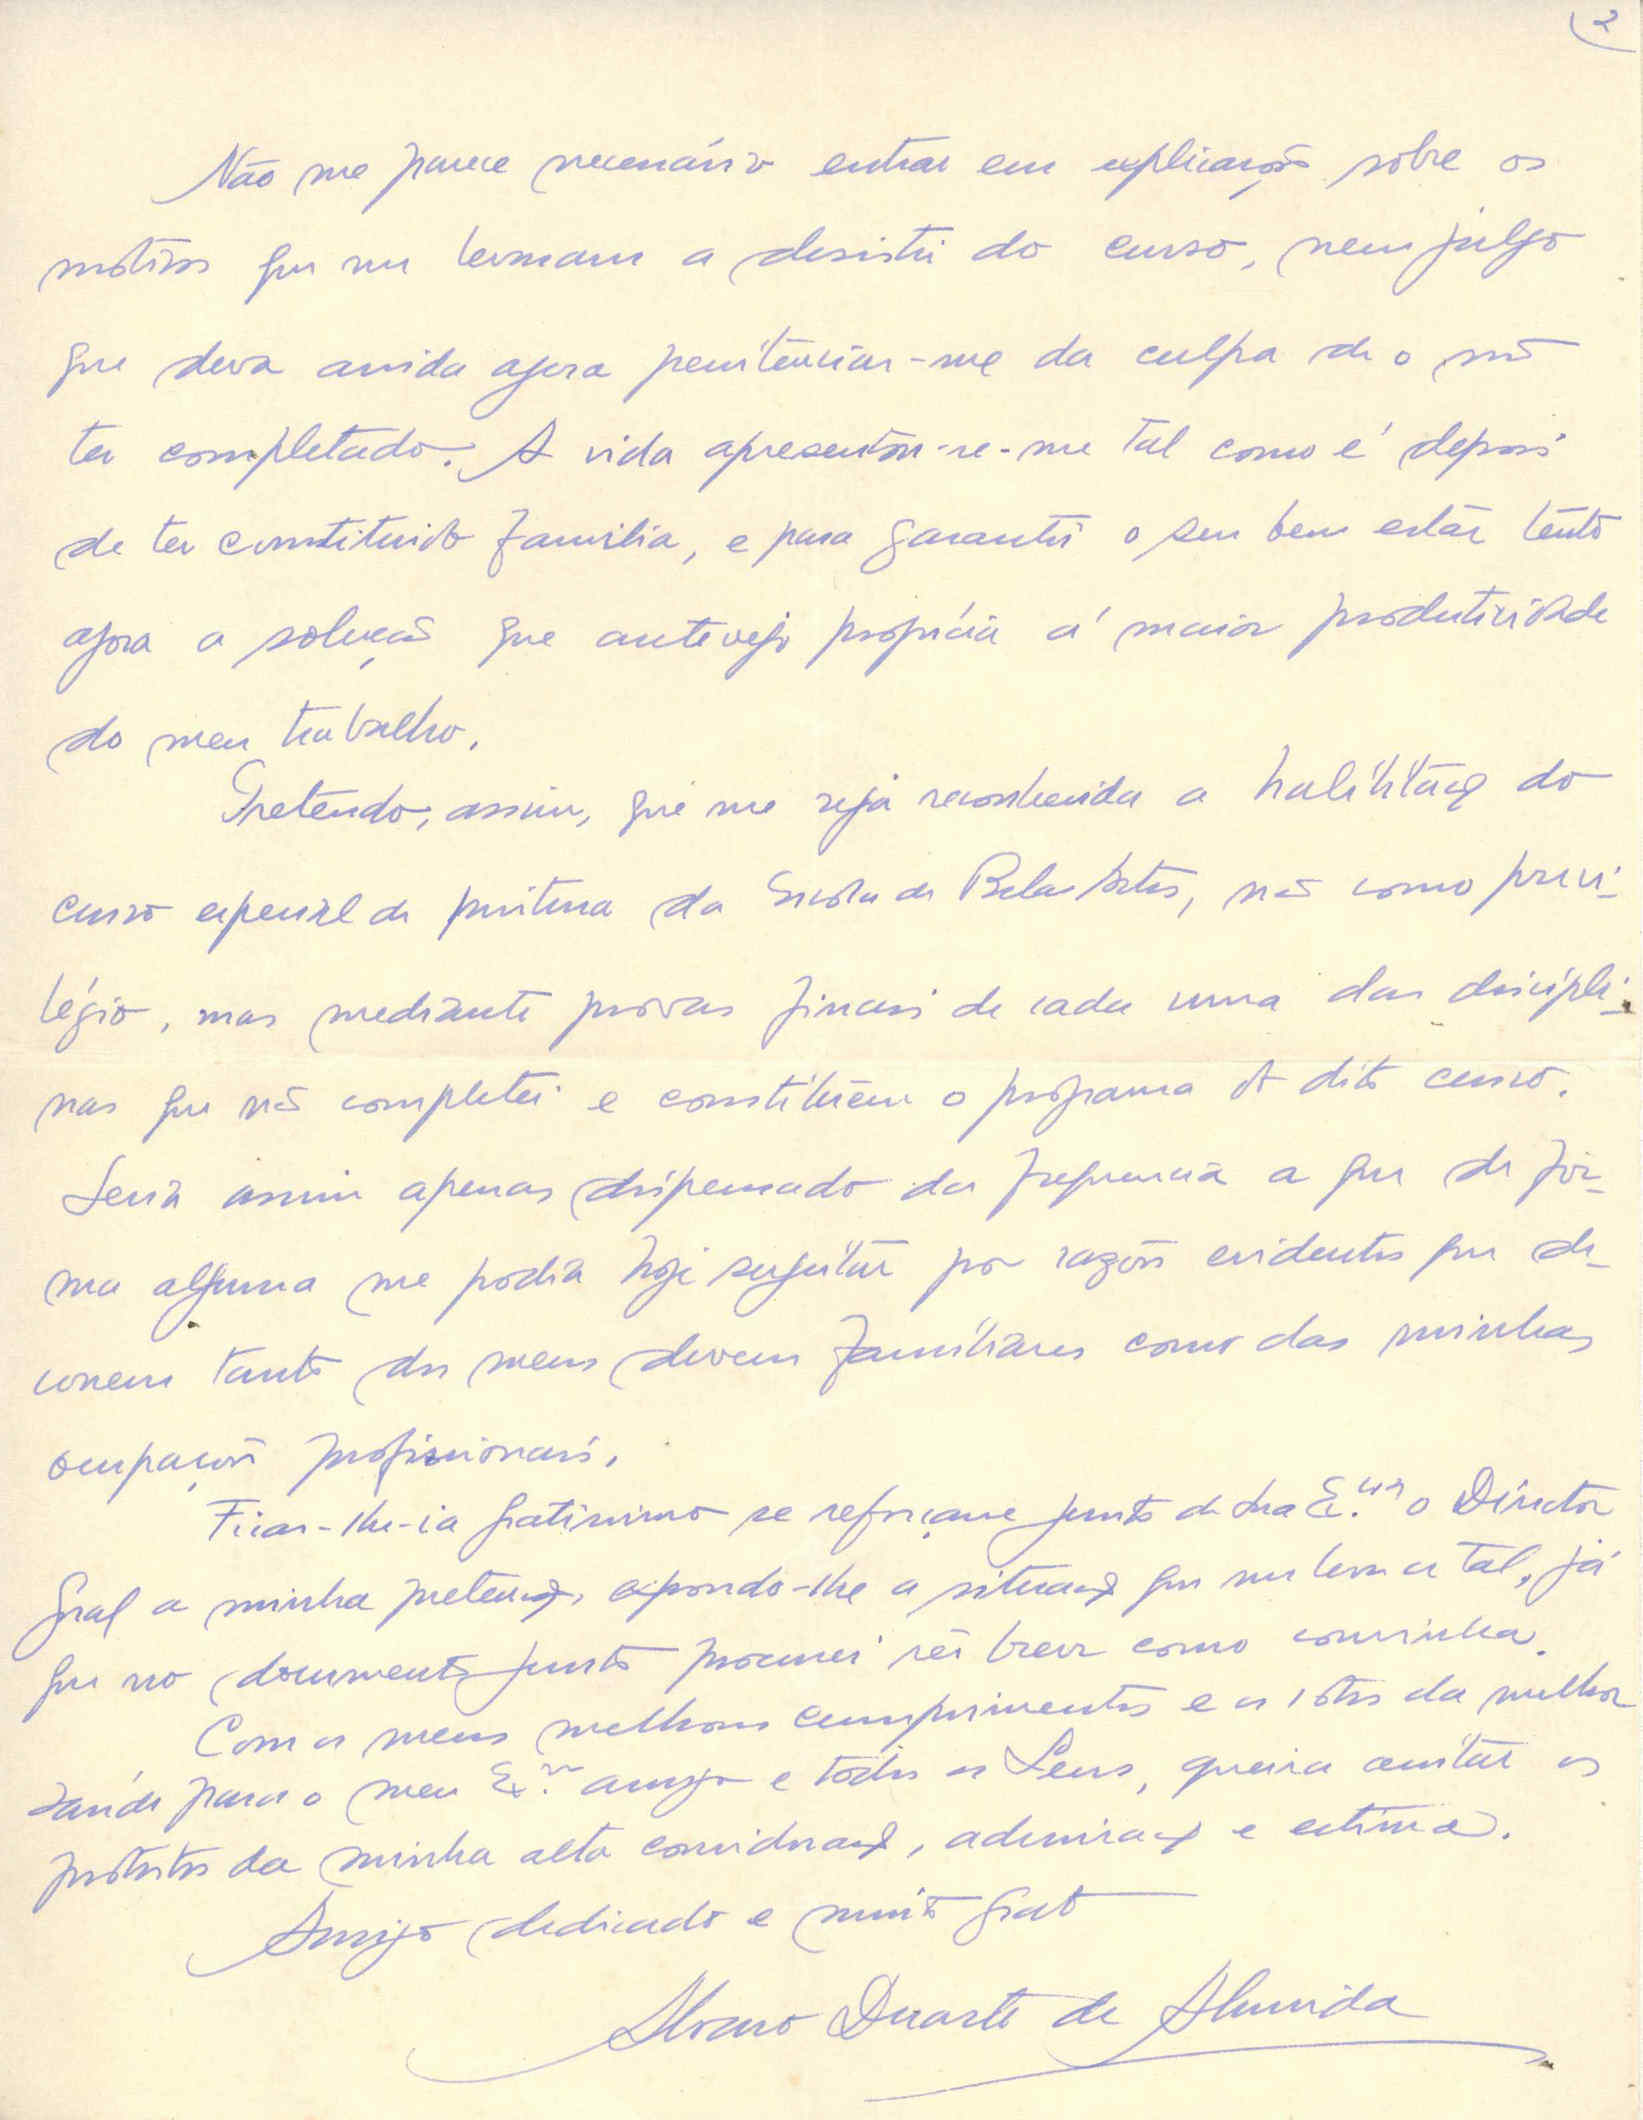 2
Não me parece necessário entrar em explicações sôbre os
motivos que me levaram a desistir do curso, nem julgo
que deva ainda agora penitênciar-me da culpa de o não
ter completado. A vida apresentou-se-me tal como é depois
de ter constituido familia, e para garantir o seu bem estar tento
agora a solução que antevejo propícia á maior produtividade
do meu trabalho.
Pretendo, assim, que me seja reconhecida a habilitação do
curso especial de pintura da Escola de Belas Artes, não como previ-
légio, mas mediante provas finais de cada uma das discipli-
nas que não completei e constituem o programa do dito curso.
Seria assim apenas dispensado da frequencia a que de fór-
ma alguma me podia hoje sugeitar por razões evidentes que de-
correm tanto dos meus deveres familiares como das minhas
ocupações profissionais.
Ficar-lhe-ia gratissimo se reforçasse junto de Sua Ex.cia o Director
Geral a minha pretenção, expondo-lhe a situação que me leva a tal, já
que no documento junto procurei ser breve como convinha.
Com os meus melhores cumprimentos e os votos da melhor
saúde para o meu Ex.mo amigo e todos os Seus, queira aceitar os
protestos da minha alta consideração, admiração e estima.
Amigo dedicado e muito grato
Alvaro Duarte de Almeida